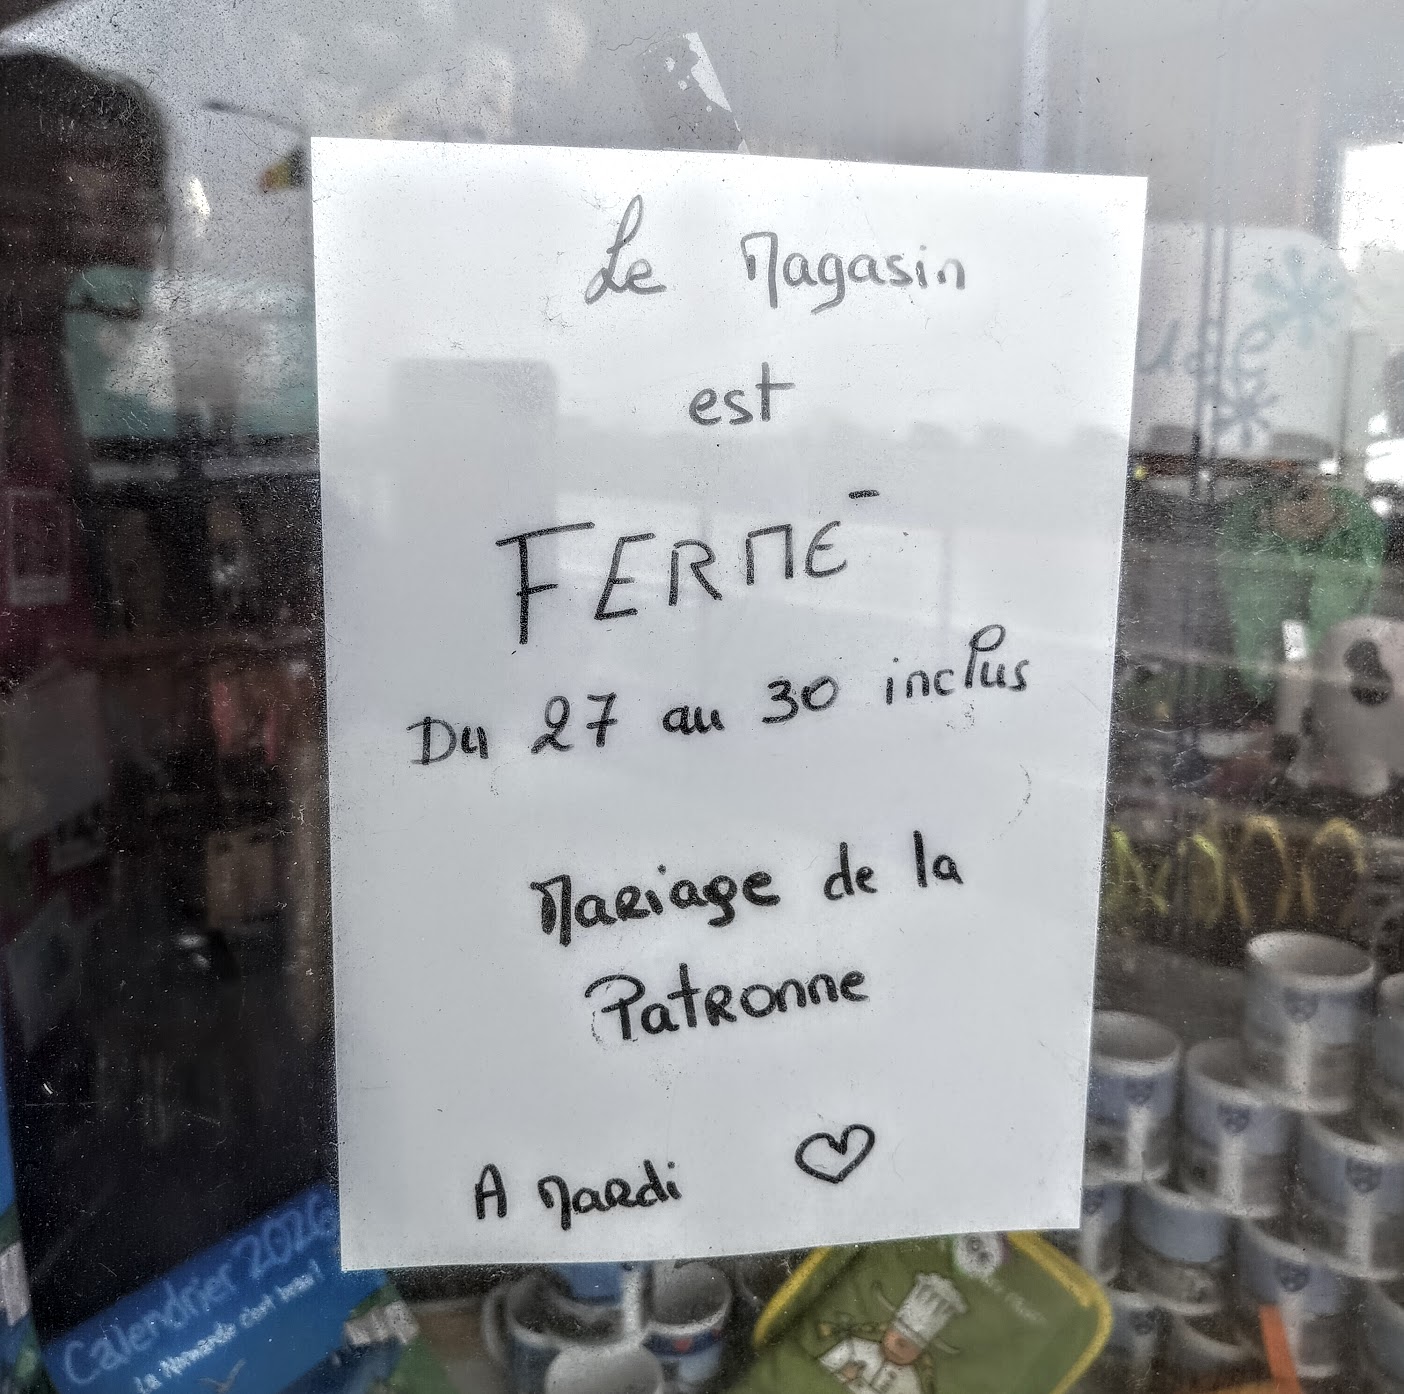 Le Magasin
est
FERMÉ
Du 27 au 30 inclus
Mariage de la
Patronne
A Mardi ♡
Calendrier 2026
La Normandie c'est beau !